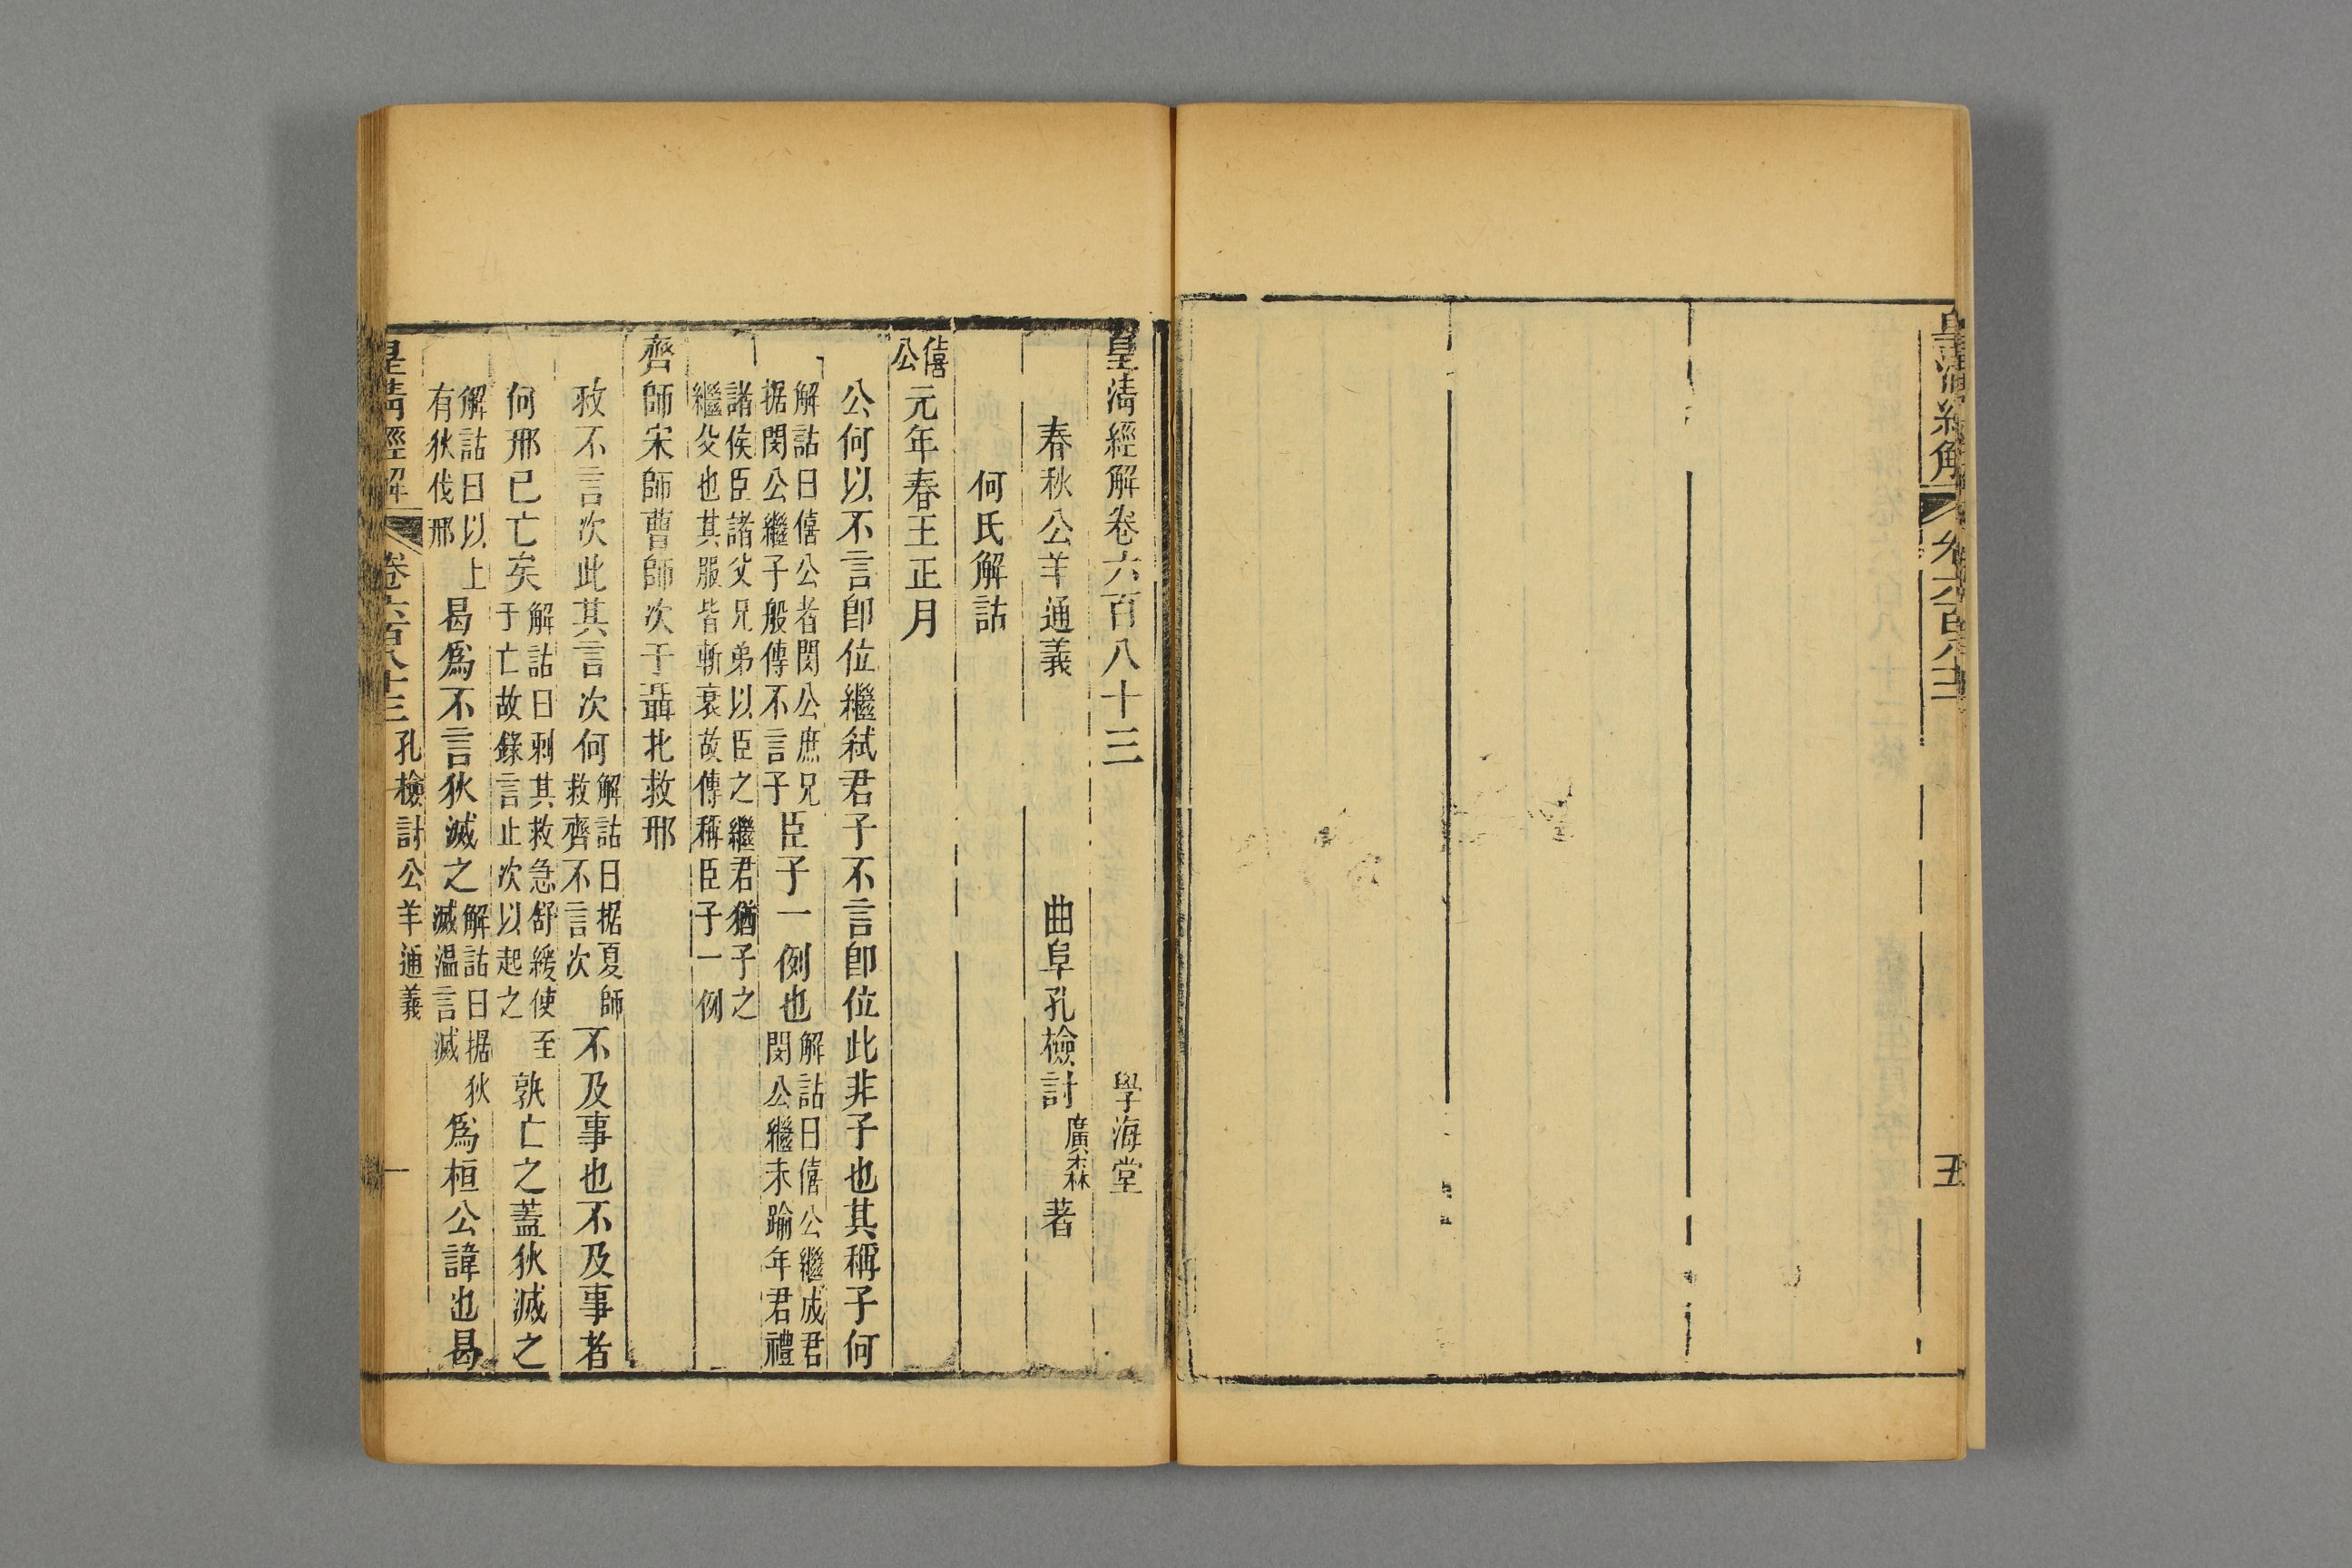 皇清經解
卷六百八十二
五
皇清經解卷六百八十三
學海堂
春秋公羊通義
曲阜孔檢討廣森著
何氏解詁
僖公元年春王正月
公何以不言卽位繼弒君子不言卽位此非子也其稱子何
解詁曰僖公者閔公庶兄据閔公繼子般傳不言子臣子一例也解詁曰僖公繼成君閔公繼未踰年君禮
諸侯臣諸父兄弟以臣之繼君猶子之繼父也其服皆斬衰故傳稱臣子一例
齊師宋師曹師次于聶北救邢
救不言次此其言次何解詁曰据夏師救齊不言次不及事也不及事者
何邢已亡矣解詁曰刺其救急舒緩使至于亡故錄言止次以起之孰亡之蓋狄滅之
解詁曰以上有狄伐邢曷爲不言狄滅之解詁曰据狄滅溫言滅爲桓公諱也曷
皇清經解
卷六百八十三
孔檢討公羊通義
一